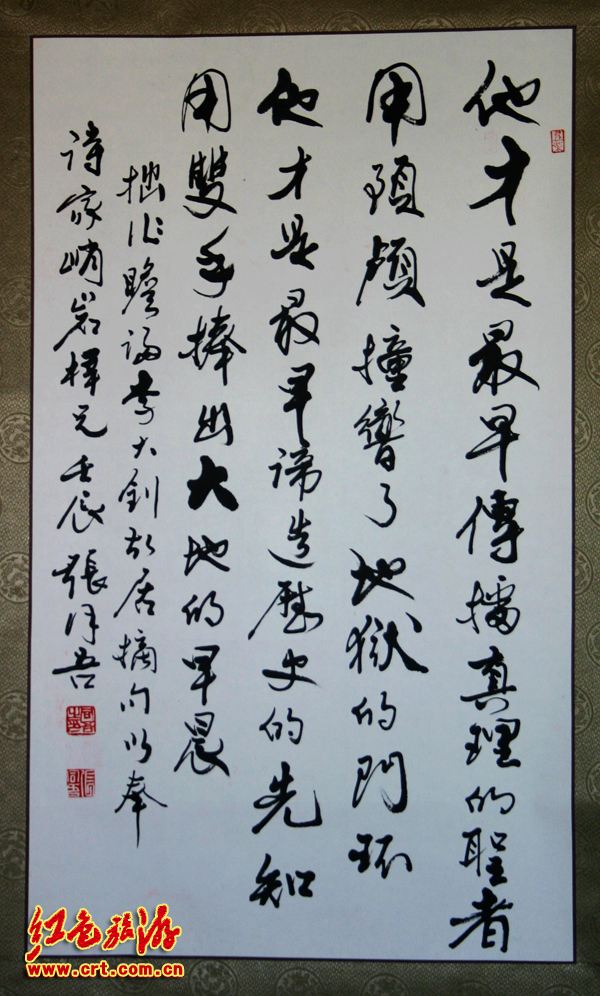 他才是最早傳播真理的聖者
用頭顱撞響了地獄的門環
他才是最早締造歷史的先知
用雙手捧出大地的早晨
拙作瞻謁李大釗故居摘句以奉
詩家峭岩 壬辰 張同吾
红色旅游
www.crt.com.cn